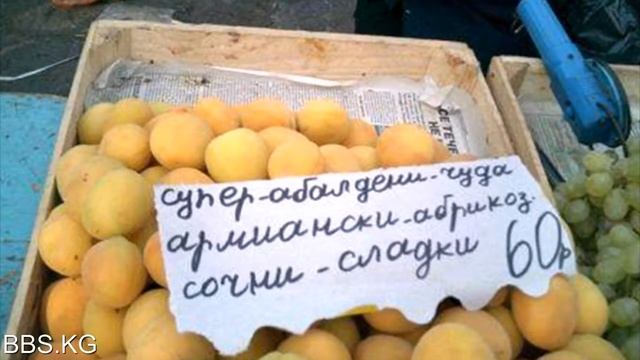 СЕ ТЕЧЕ
НЕ
супер-абалдени-чуда
армиански-абрикоз.
сочни-сладки 60р
BBS.KG